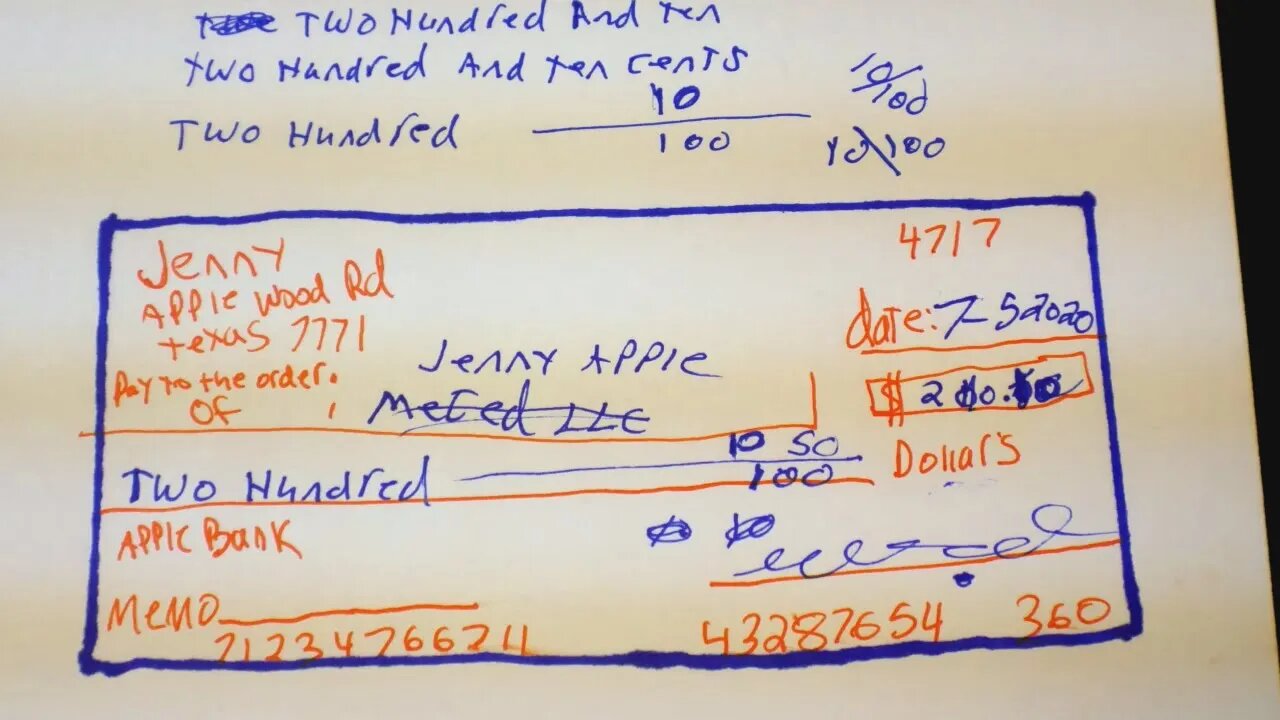 Two Hundred And Ten
Two Hundred And Ten Cents
10/100
Two Hundred 10
100
10\100
4717
Jenny
Apple Wood Rd
Texas 7771
date: 7-52020
Pay to the order.
Of
Jenny Apple
$ 2
Two Hundred 10 50
100
Dollars
Apple Bank
Memo
43287654 360